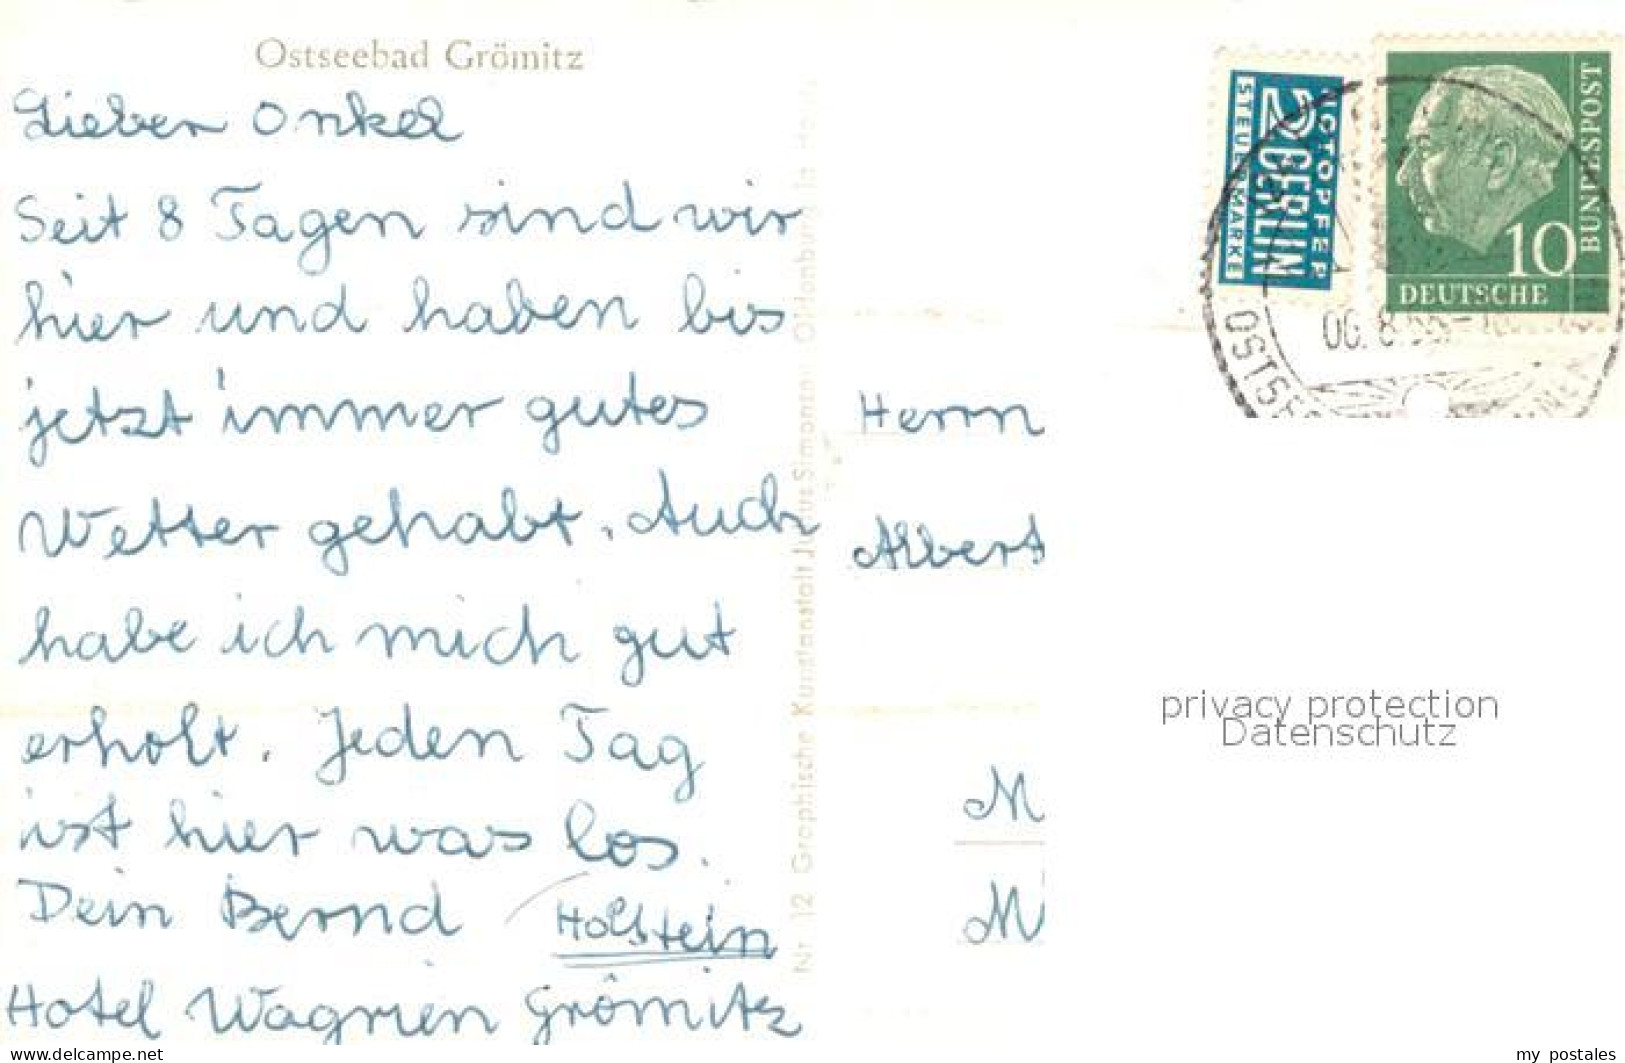 Ostseebad Grömitz
Lieber Onkel
Seit 8 Tagen sind wir
hier und haben bis
jetzt immer gutes
Wetter gehabt. Auch
habe ich mich gut
erholt. Jeden Tag
ist hier was los.
Dein Bernd Holstein
Hotel Wagrien Grömitz
Nr. 12 Graphische Kunstanstalt Julius Simonsen Oldenburg in
2 NOTOPFER
BERLIN
STEUERMARKE
DEUTSCHE
BUNDESPOST
10
06. 8.
OSTSE
Herrn
Albert
M
M
privacy protection
Datenschutz
www.delcampe.net
my_postales